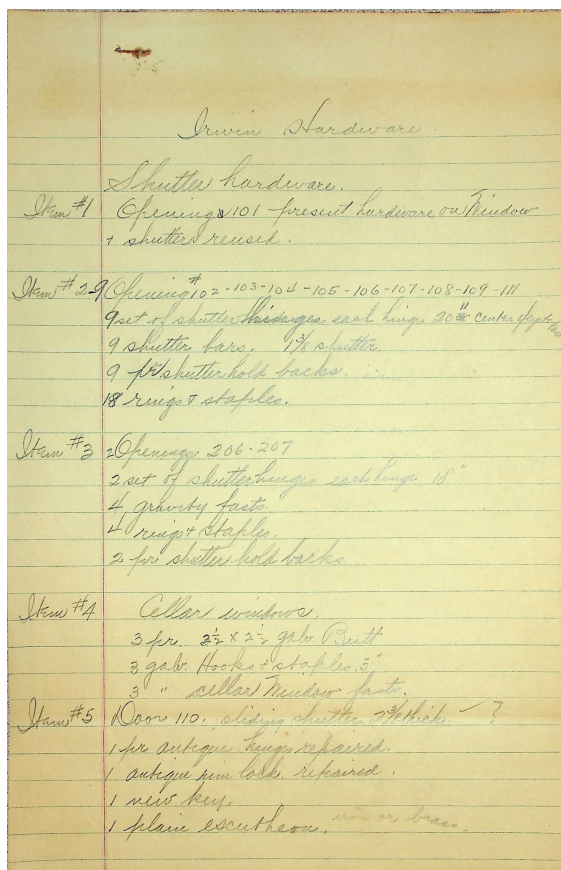 Irwin Hardware.
Shutter hardware.
Item #1 Openings 101 present hardware on Window
+ shutters reused.
Item #2-9 Opening #102-103-104-105-106-107-108-109-111
9 set of shutter hinges each hinge 20" center
9 shutter bars. 1 3/8 shutter
9 pr shutter hold backs.
18 rings & staples.
Item #3 2 Openings 206-207
2 set of shutter hinges each hinge 18"
4 gravity fasts
4 rings + staples.
2 pr shutter hold backs
Item #4 Cellar windows.
3 pr. 2 1/2 galv. Butt
3 galv. Hooks + staples. 3"
3 " cellar Window fasts.
Item #5 Door 110. sliding shutter thick - ?
1 pr antique hinges repaired.
1 antique rim lock. repaired.
1 new key.
1 plain escutheon. iron or brass.